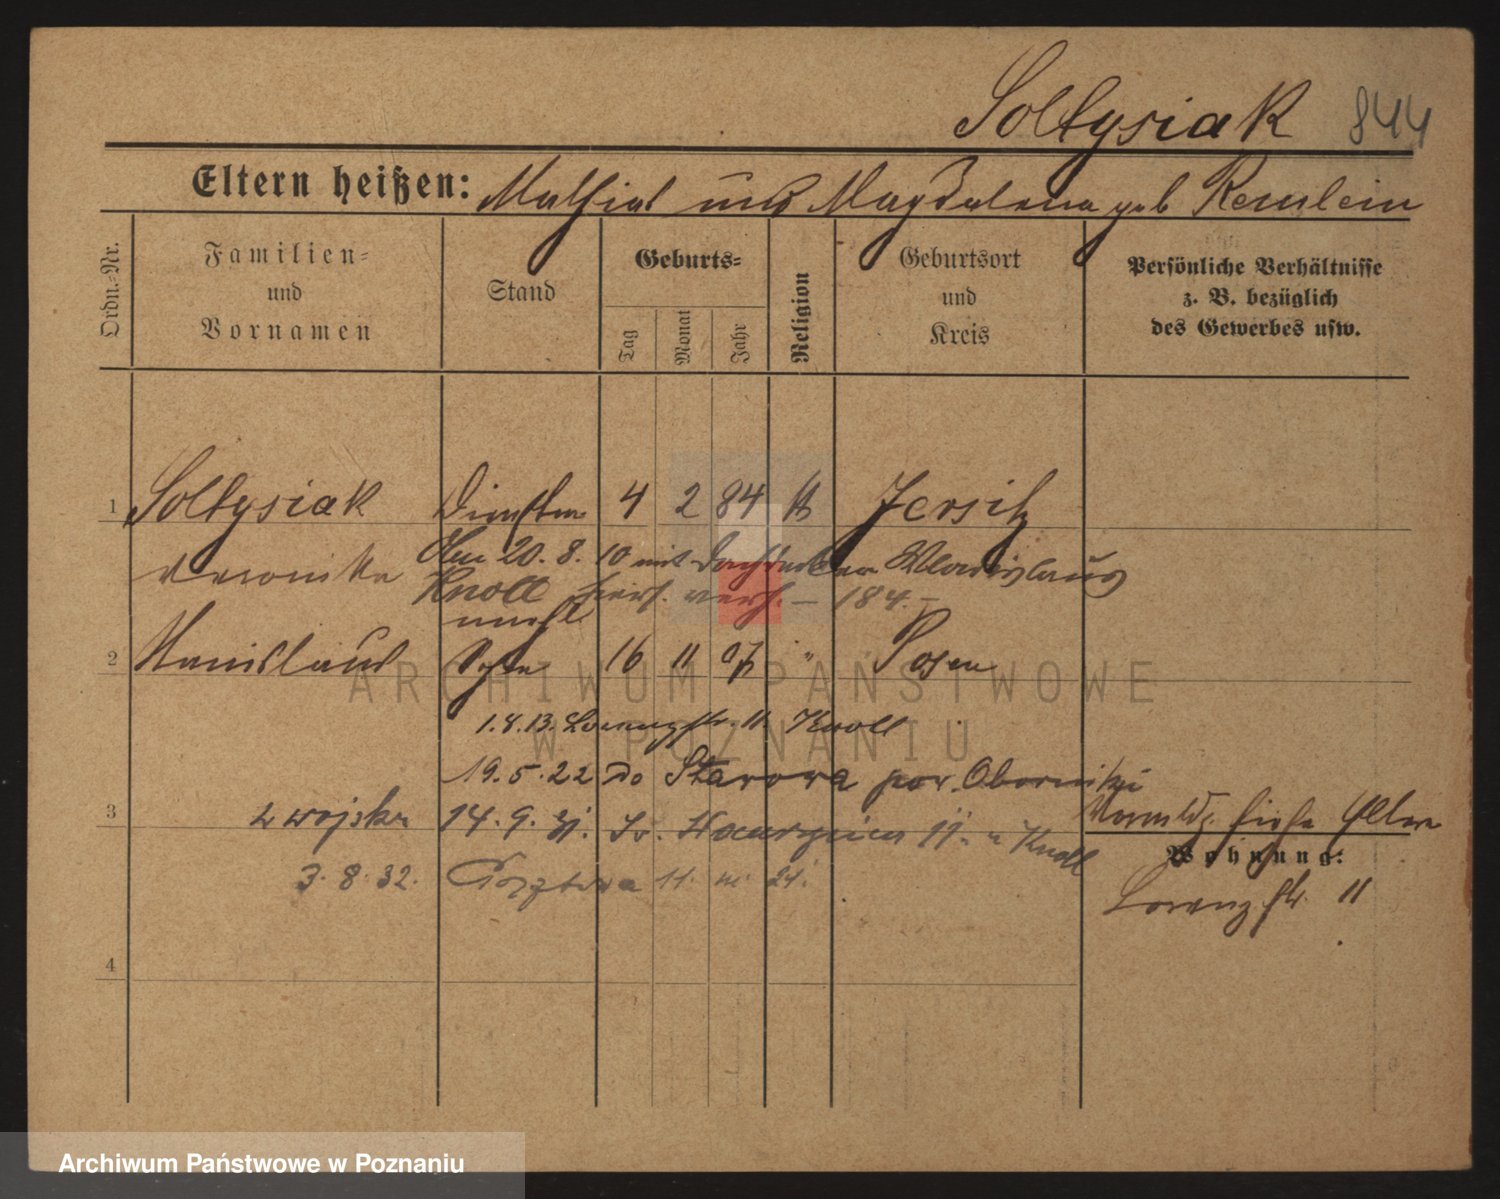 Soltysiak 844
Eltern heißen: Mathias und Magdalena geb Remlein
Ordn.-Nr.
Familien-
und
Vornamen
Stand
Geburts-
Tag
Monat
Jahr
Religion
Geburtsort
und
Kreis
Persönliche Verhältnisse
z. B. bezüglich
des Gewerbes usw.
1 Soltysiak 4 2 84 k Jersitz
Veronika 20. 8. 10 mit Dachdecker Wladislaus
Knoll hier verh. — 184. —
unehl
2 Stanislaus Sohn 16 11 07 " Posen
1.8.13. Lorenzstr. 11. Knoll
19.5.22 do por. Obornicki
3 z wojska 14. 9. Św. Wawrzyńca 11. u Knoll
3. 8. 32. 11. m. 21.
Wohnung:
Lorenzstr. 11
4
ARCHIWUM PAŃSTWOWE
W POZNANIU
Archiwum Państwowe w Poznaniu